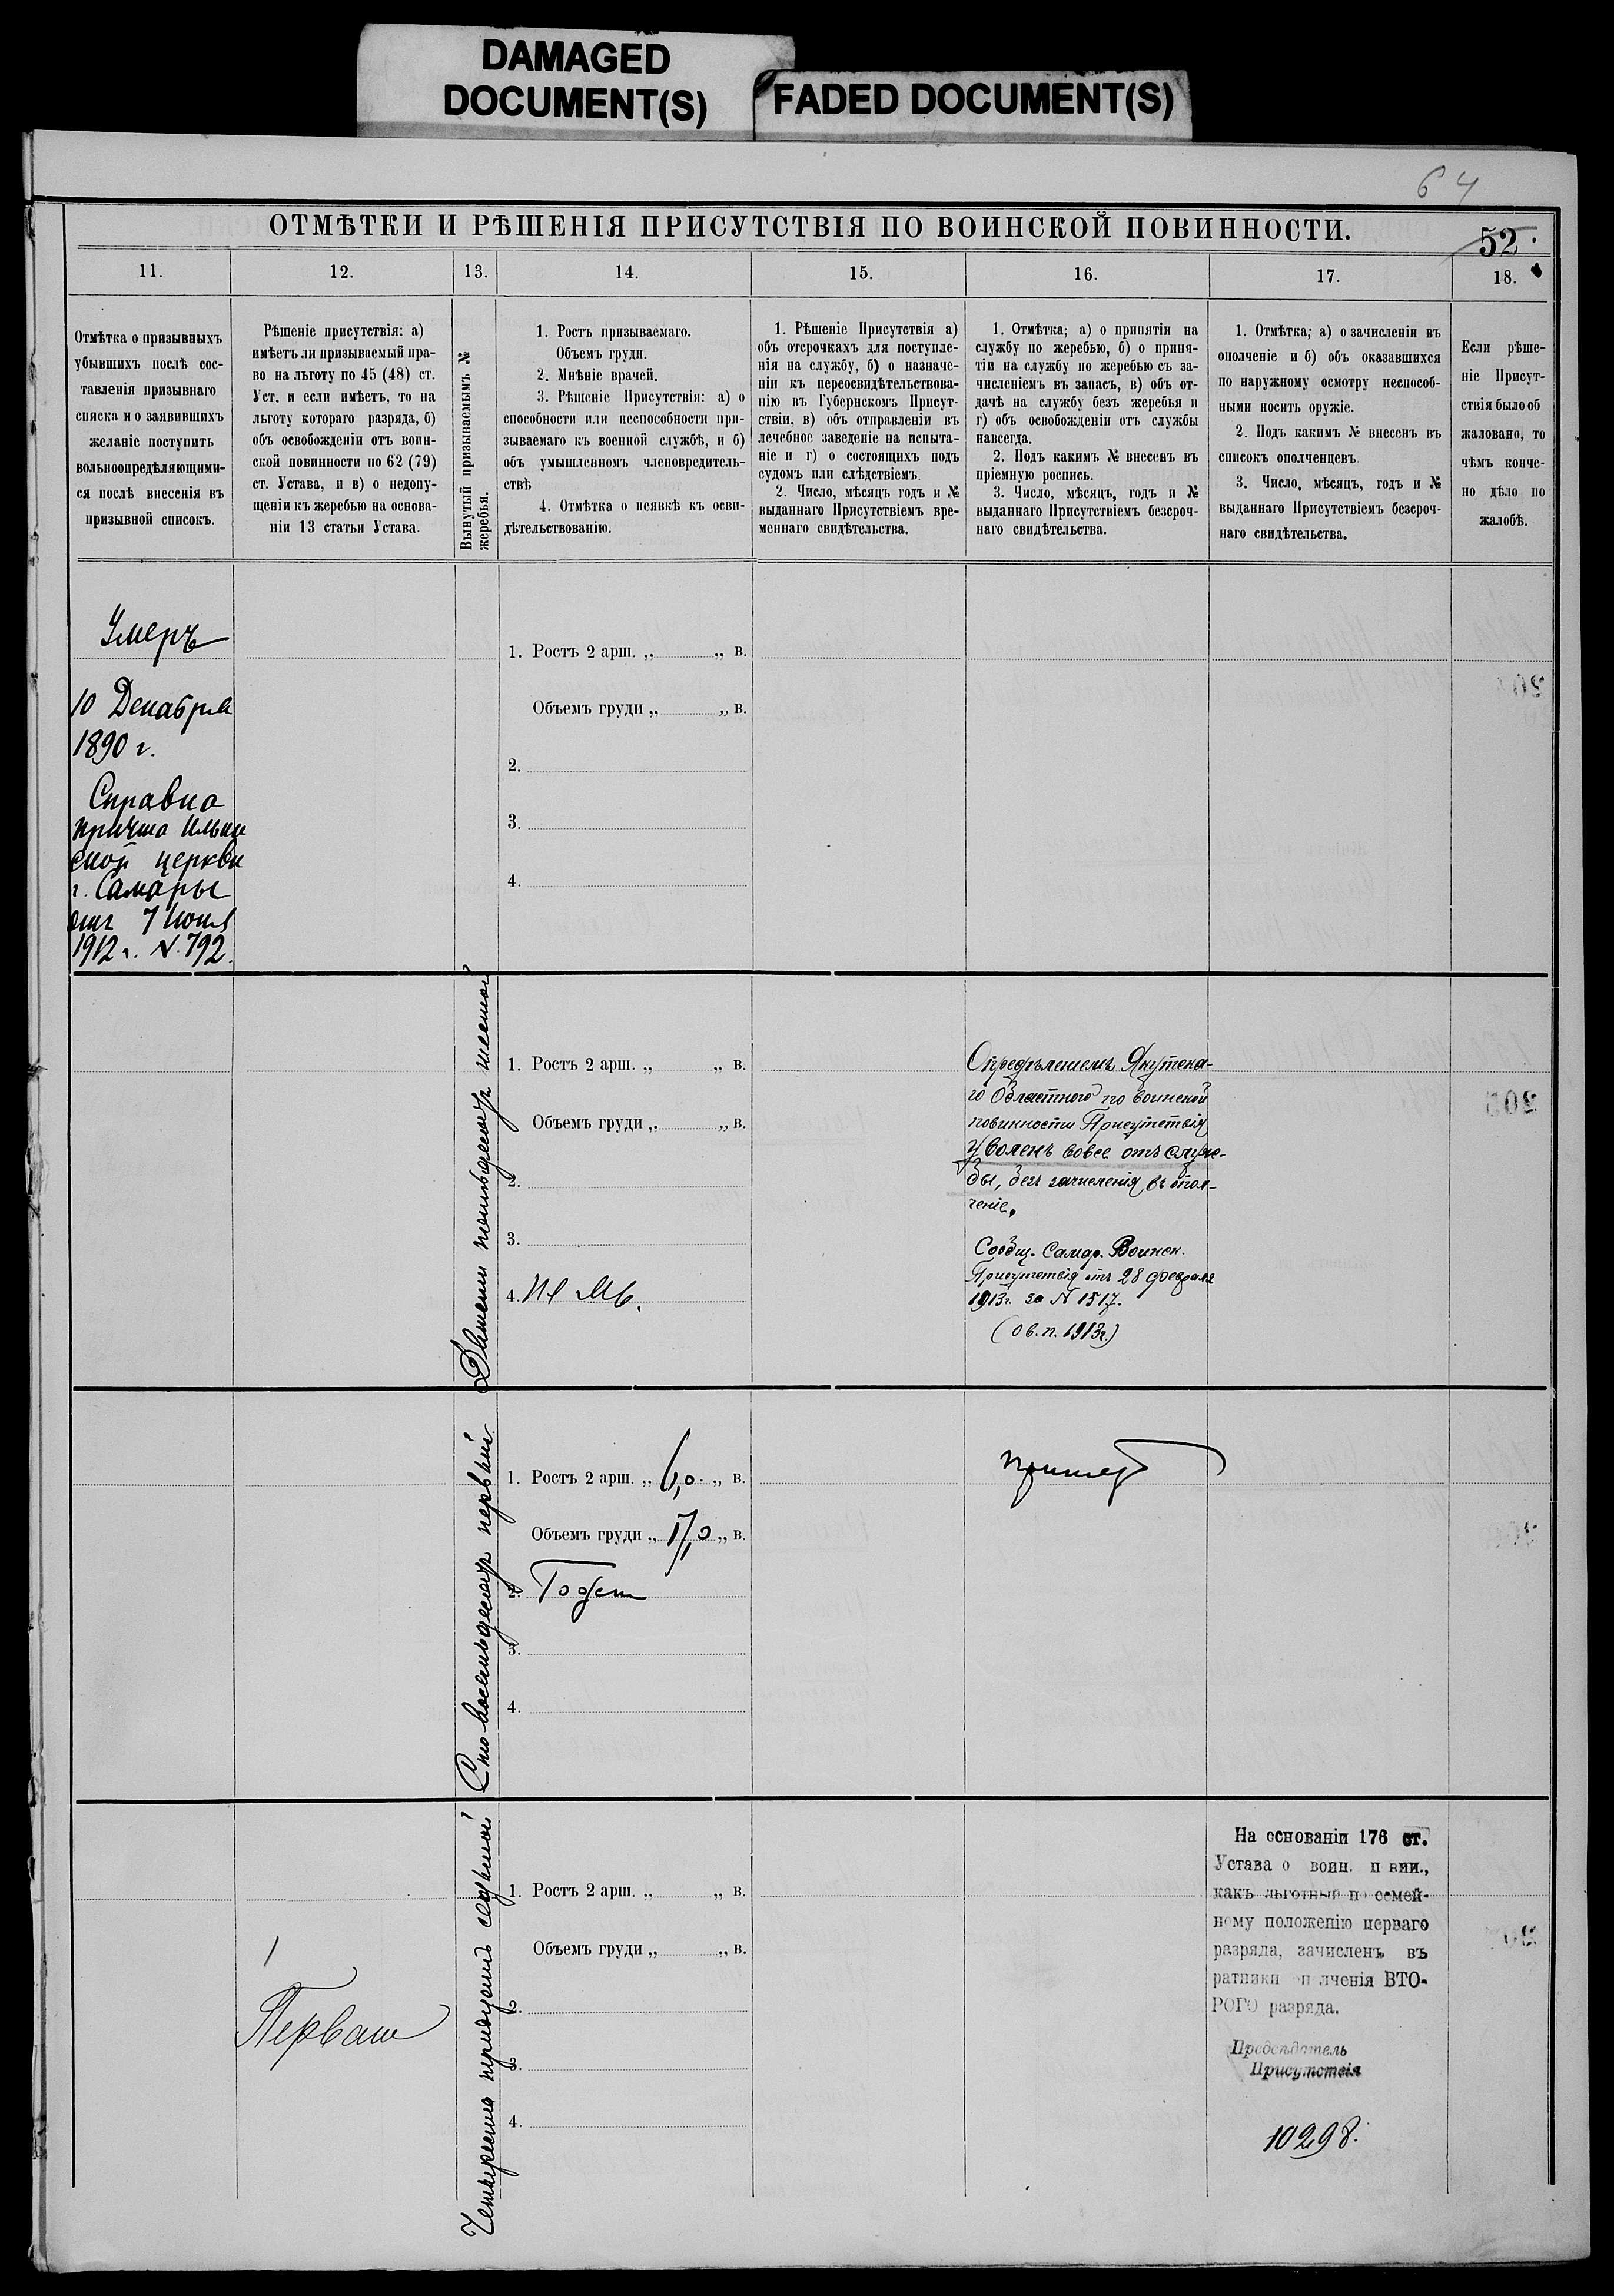 DAMAGED
DOCUMENT(S)
FADED DOCUMENT(S)
64
ОТМѢТКИ И РѢШЕНІЯ ПРИСУТСТВІЯ ПО ВОИНСКОЙ ПОВИННОСТИ.
52
11.
12.
13.
14.
15.
16.
17.
18.
Отмѣтка о призывныхъ
убывшихъ послѣ сос-
тавленія призывнаго
списка и о заявившихъ
желаніе поступить
вольноопредѣляющими-
ся послѣ внесенія въ
призывной списокъ.
Рѣшеніе присутствія: а)
имѣетъ ли призываемый пра-
во на льготу по 45 (48) ст.
Уст. и если имѣетъ, то на
льготу котораго разряда, б)
объ освобожденіи отъ воин-
ской повинности по 62 (79)
ст. Устава, и в) о недопу-
щеніи къ жеребью на основа-
ніи 13 статьи Устава.
Вынутый призываемымъ №
жеребья.
1. Ростъ призываемаго.
Объемъ груди.
2. Мнѣніе врачей.
3. Рѣшеніе Присутствія: а) о
способности или неспособности при-
зываемаго къ военной службѣ, и б)
объ умышленномъ членовредитель-
ствѣ
4. Отмѣтка о неявкѣ къ осви-
дѣтельствованію.
1. Рѣшеніе Присутствія а)
объ отсрочкахъ для поступле-
нія на службу, б) о назначе-
ніи къ переосвидѣтельствова-
нію въ Губернскомъ Присут-
ствіи, в) объ отправленіи въ
лечебное заведеніе на испыта-
ніе и г) о состоящихъ подъ
судомъ или слѣдствіемъ.
2. Число, мѣсяцъ годъ и №
выданнаго Присутствіемъ вре-
меннаго свидѣтельства.
1. Отмѣтка; а) о принятіи на
службу по жеребью, б) о приня-
тіи на службу по жеребью съ за-
численіемъ въ запасъ, в) объ от-
дачѣ на службу безъ жеребья и
г) объ освобожденіи отъ службы
навсегда.
2. Подъ какимъ № внесенъ въ
пріемную роспись.
3. Число, мѣсяцъ, годъ и №
выданнаго Присутствіемъ безсроч-
наго свидѣтельства.
1. Отмѣтка; а) о зачисленіи въ
ополченіе и б) объ оказавшихся
по наружному осмотру неспособ-
ными носить оружіе.
2. Подъ какимъ № внесенъ въ
списокъ ополченцевъ.
3. Число, мѣсяцъ, годъ и №
выданнаго Присутствіемъ безсроч-
наго свидѣтельства.
Если рѣше-
ніе Присут-
ствія было об
жаловано, то
чѣмъ конче-
но дѣло по
жалобѣ.
Умеръ
10 Декабря
1890 г.
Справка
причта Ильин
ской церкви
г. Самары
отъ 7 Іюня
1912 г. N. 792.
1. Ростъ 2 арш. „ „ в.
Объемъ груди „ „ в.
2.
3.
4.
Двѣсти пятьдесятъ шестой
1. Ростъ 2 арш. „ „ в.
Объемъ груди „ „ в.
2.
3.
4.
Опредѣленіемъ Якутска-
го Областного по воинской
повинности Присутствія
уволенъ вовсе отъ служ-
бы, безъ зачисленія въ опол-
ченіе.
Сообщ. Самар. Воинск.
Присутствія отъ 28 февраля
1913г. за N 1517.
(ов.п. 1913г.)
Сто восемьдесятъ первый
1. Ростъ 2 арш. „ 6,0 „ в.
Объемъ груди „ 17,0 „ в.
2. Годенъ
3.
4.
принятъ
Четыреста тридцать седьмой
1
Первый
1. Ростъ 2 арш. „ „ в.
Объемъ груди „ „ в.
2.
3.
4.
На основаніи 176 ст.
Устава о воин. п вин.,
какъ льготный по семей-
ному положенію перваго
разряда, зачисленъ въ
ратники оп лченія ВТО-
РОГО разряда.
Предсѣдатель
Присутствія
10298.